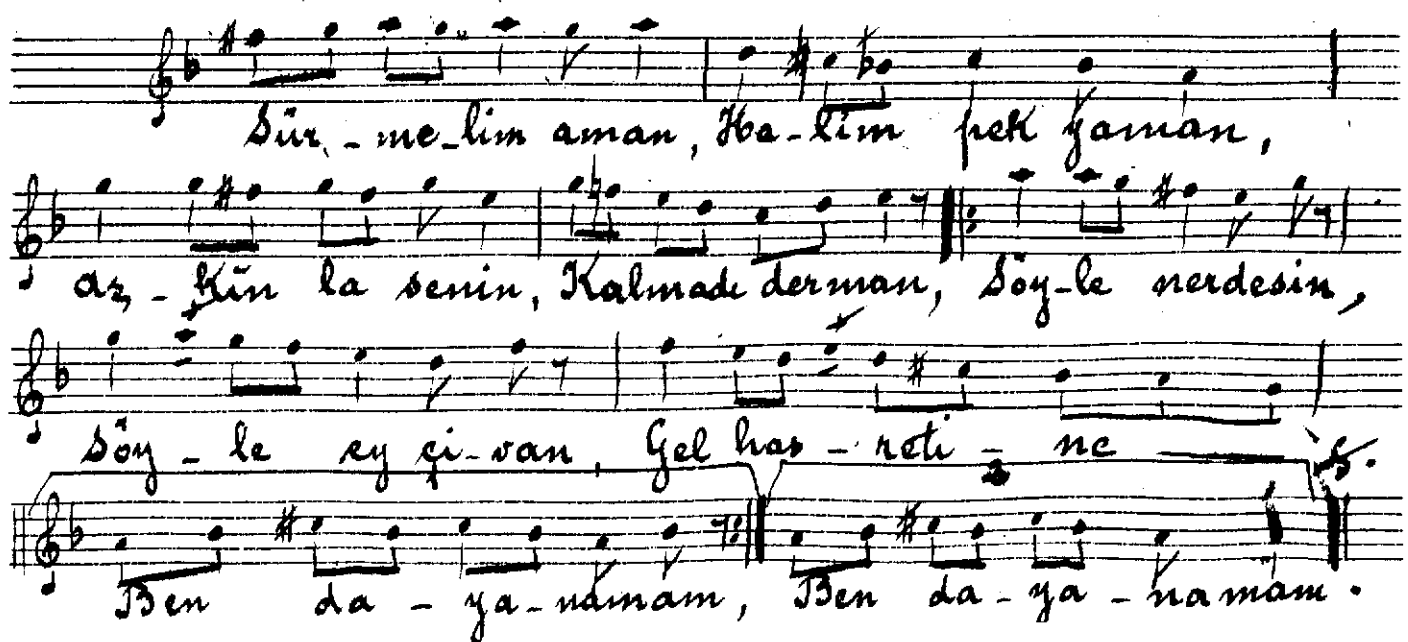 Sür - me - lim aman, Ha - lim pek yaman,
aş - kin la senin, Kalmadı derman, Söy - le nerdesin,
Söy - le ey çi - van, Gel has - reti - ne
2
Ben da - ya - namam, Ben da - ya - namam.